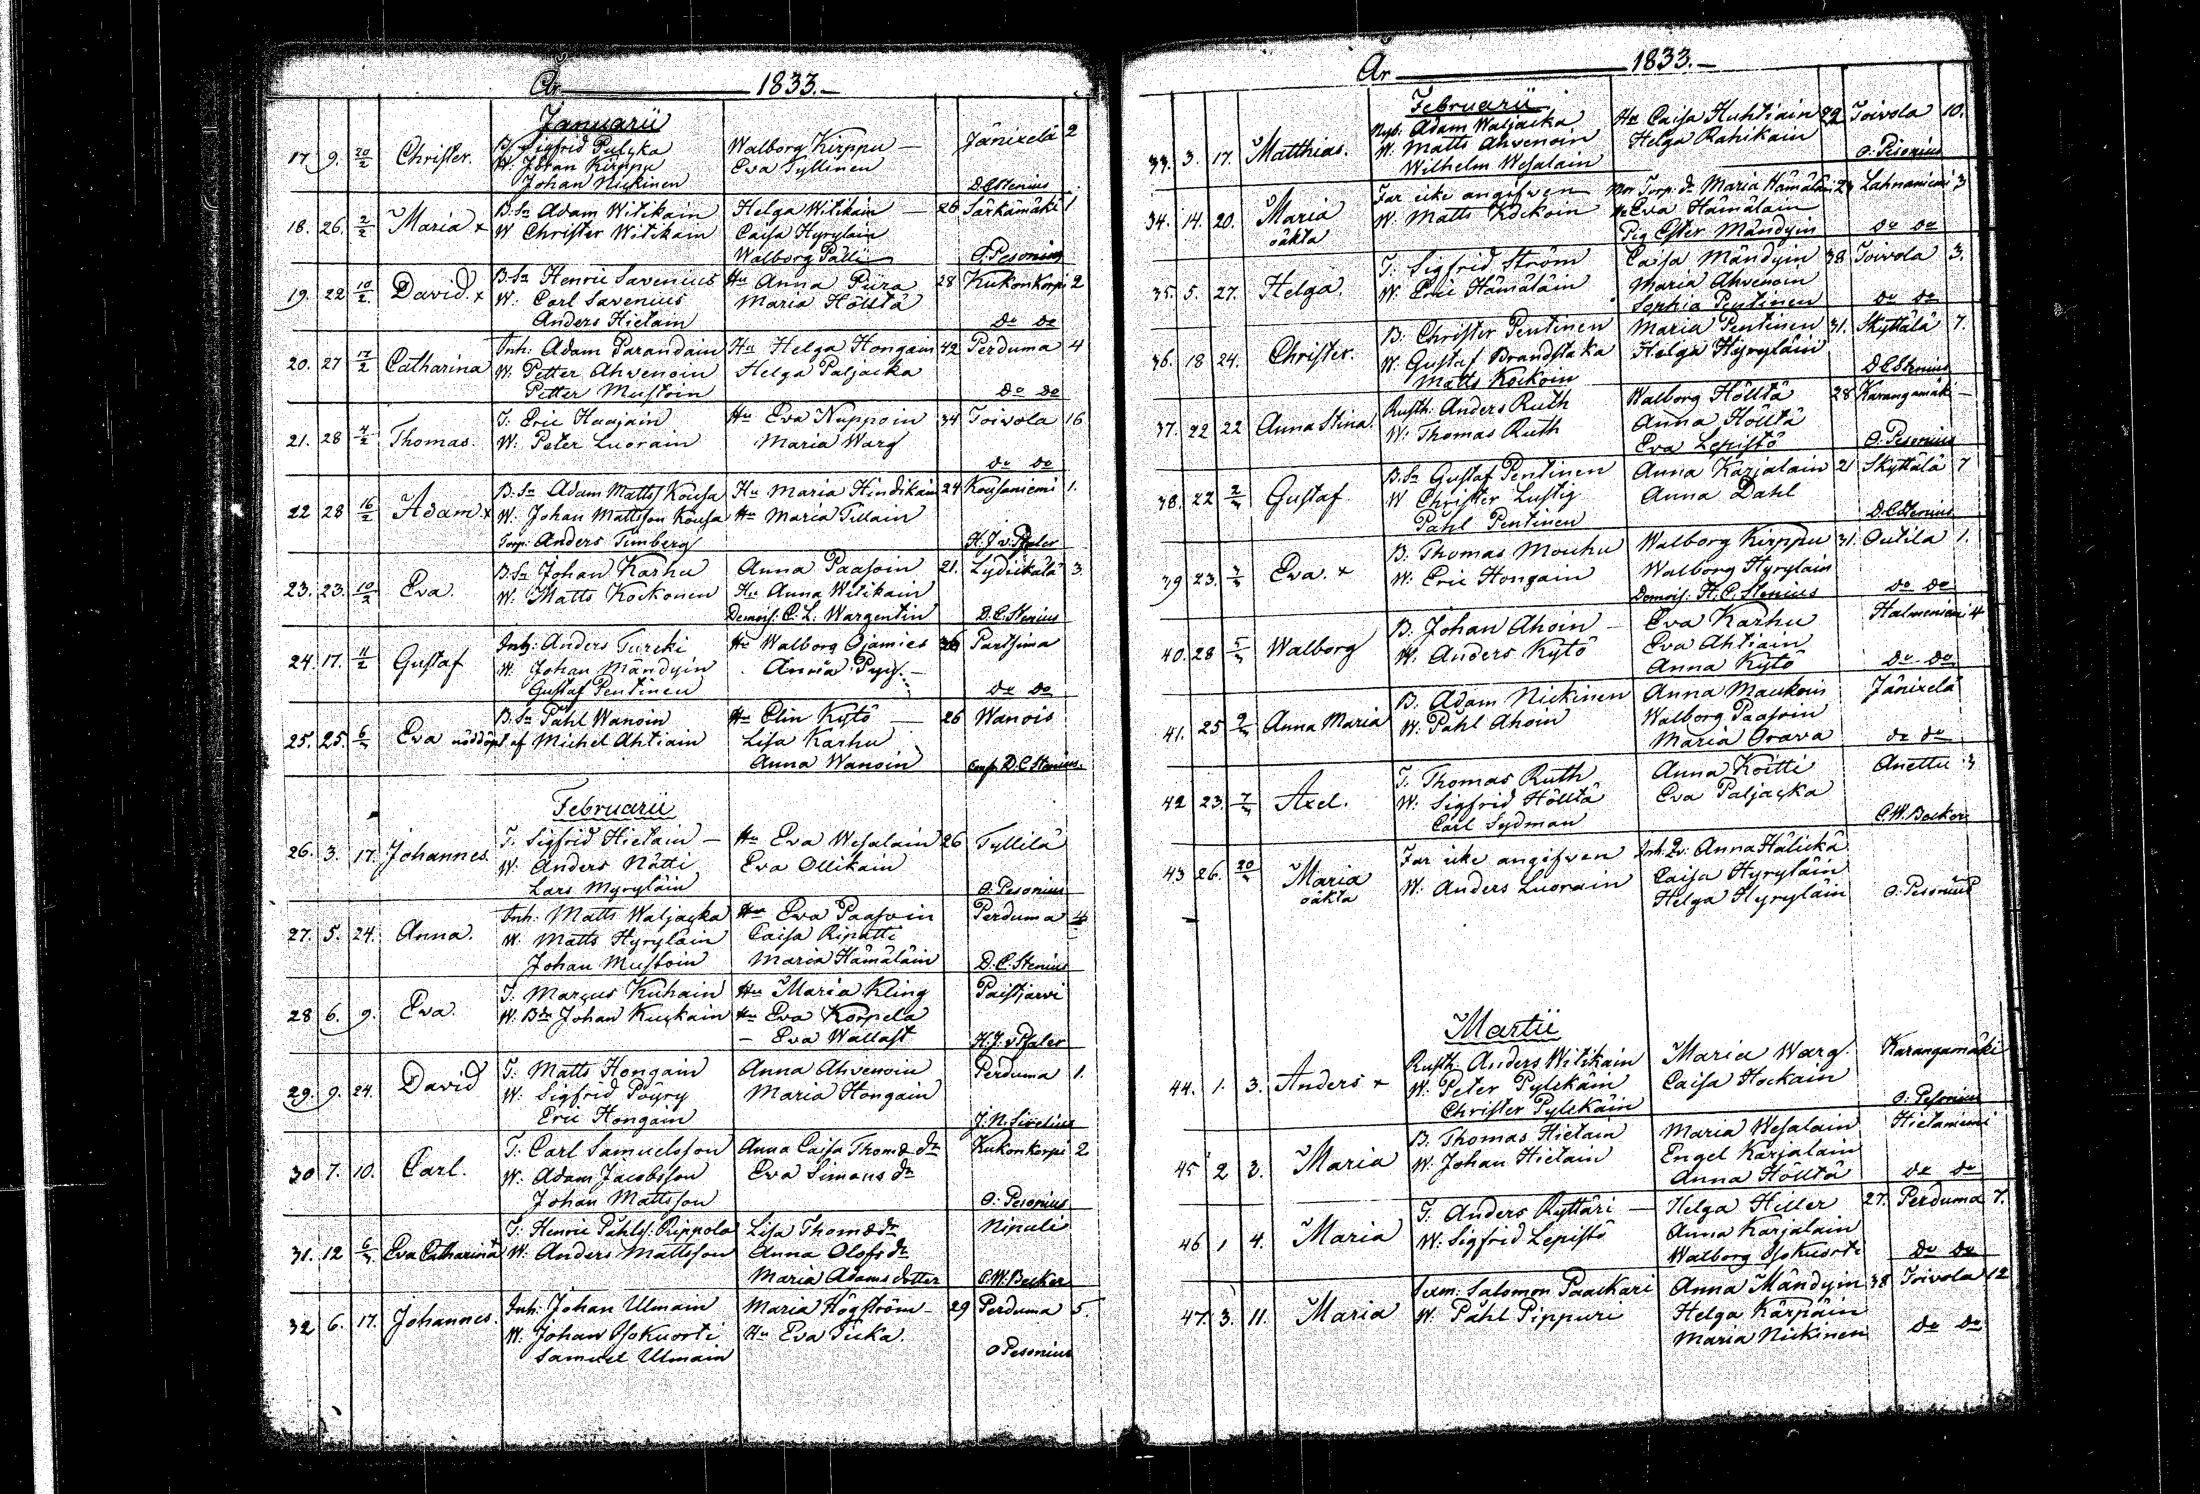 År 1833.
Januarii
17. 9. 20/2 Christer. B. Sigfrid Pulcka Walborg Kirppu Jänixelä 2
W. Johan Kirppu Eva Tyllinen
Johan Nickinen D.C. Stenius
18. 26. 2/2 Maria x B.Sn Adam Witikain Helga Witikain 26 Särkämäki 1
W Christer Witikain Caisa Hyryläin
Walborg Pätti O. Pesonius
19. 22 10/2 David. x B.Sn Henric Savenius Hu Anna Piira 28 Kukonkorpi 2
W. Carl Savenius Maria Hölttä
Anders Hietain do do
20. 27 17/2 Catharina Inh: Adam Parandain Hu Helga Hongain 42 Perduma 4
W. Petter Ahvenoin Helga Paljacka
Petter Mustoin do do
21. 28 4/2 Thomas. T. Eric Haajain Hu Eva Nuppoin 34 Toivola 16
W. Peter Luorain Maria Warg
do do
22 28 16/2 Adam x B.Sn Adam Matts Kousa Hu Maria Hindikain 24 Kousaniemi 1.
W. Johan Mattsson Kousa Hu Maria Tillain
Torp: Anders Timberg H.J. v. Pfaler
23. 23. 10/2 Eva. B.Sn Johan Karhu Anna Paasoin 21. Lydickälä 3.
W. Matts Kockonen Hu Anna Witikain
Demois. C. L. Wargentin D.C. Stenius
24. 17. 11/2 Gustaf Inh: Anders Turcki Hu Walborg Ojamies Partsima
W. Johan Mändyin Anna Pyy.
Gustaf Pentinen do do
25. 25. 6/3 Eva nöddöpt af B.Sn Påhl Wanoin Hu Elin Kytö 26 Wanois
Michel Ahtiain Lisa Karhu
Anna Wanoin D.C. Stenius.
Februarii
26. 3. 17. Johannes. T. Sigfrid Hietain Hu Eva Wesalain 26 Tyllilä
W. Anders Nätti Eva Ollikain
Lars Myryläin O. Pesonius
27. 5. 24. Anna. Inh: Matts Waljacka Hu Eva Paasoin Perduma 4
W. Matts Hyryläin Caisa Ripatti
Johan Mustoin Maria Hämäläin D.C. Stenius
28 6. 9. Eva. T. Marcus Kuhain Hu Maria Kling Paistjärvi
W. Bde Johan Kuckain Hu Eva Korpela
Eva Wallast H.J. v Pfaler
29. 9. 24. David T. Matts Hongain Anna Ahvenoin Perduma 1.
W. Sigfrid Pöyry Maria Hongain
Eric Hongain J.N. Sirelius
30 7. 10. Carl. T. Carl Samuelsson Anna Caisa Thomæ dr Kukonkorpi 2
W. Adam Jacobsson Eva Simons dr
Johan Mattsson O. Pesonius
31. 12 6/3 Eva Catharina T. Henric Påhls. Rippola Lisa Thomæ dr Nipuli
W. Anders Mattsson Anna Olofs dr
Maria Adams dotter C.W. Becker
32 6. 17. Johannes. Inh: Johan Ulmain Maria Högström 29 Perduma 5.
W. Johan Isokuorti Hu Eva Ticka.
Samuel Ulmain O Pesonius
År 1833.
Februarii
33. 3. 17. Matthias. Nyb: Adam Waljacka Hu Caisa Huhtiain 22 Toivola 10.
W. Matts Ahvenoin Helga Rahikain
Wilhelm Wesalain O. Pesonius
34. 14. 20. Maria Far icke angifven Mor Torp. dr Maria Hämäläin 24 Lahnaniemi 3
oäkta W. Matts Kockoin Eva Hämäläin
Pig Ester Mändyin do do
35. 5. 27. Helga. T. Sigfrid Ström Caisa Mändyin 38 Toivola 3.
W. Eric Hämäläin Maria Ahvenoin
Sophia Pentinen do do
36. 18 24. Christer. B. Christer Pentinen Maria Pentinen 31. Skyttälä 7.
W. Gustaf Brandstaka Helga Hyryläin
Matts Kockoin D C Stenius
37. 22 22 Anna Stina. Rusth: Anders Ruth Walborg Hölttä 28 Karangamäki
W. Thomas Ruth Anna Hölttä
Eva Lepistö O. Pesonius
38. 22 2/3 Gustaf B.Sn Gustaf Pentinen Anna Karjalain 21 Skyttälä 7
W Christer Lustig Anna Dahl
Påhl Pentinen D.C. Stenius
39 23. 3/3 Eva. x B. Thomas Mouhu Walborg Kirppu 31. Outila 1.
W. Eric Hongain Walborg Hyryläin
Demois: H. C. Stenius do do
40. 28 5/3 Walborg B. Johan Ahoin Eva Karhu Halmeniemi 4
W. Anders Kytö Eva Ahtiain
Anna Kytö do do
41. 25 9/3 Anna Maria B. Adam Nickinen Anna Maukoin Jänixelä
W. Påhl Ahoin Walborg Paasoin
Maria Orava do do
42 23. 7/3 Axel. T. Thomas Ruth Anna Koitti Anettu 3
W. Sigfrid Hölttä Eva Paljacka
Carl Sydman C.W. Becker
43 26. 20/3 Maria Far icke angifven Inh. Qv: Anna Hälickä
oäkta W. Anders Luorain Caisa Hyryläin
Helga Hyryläin O. Pesonius
Martii
44. 1. 3. Anders x Rusth: Anders Witikain Maria Warg. Karangamäki
W. Peter Pylckäin Caisa Hockain
Christer Pylckäin O. Pesonius
45 2 3. Maria B. Thomas Hietain Maria Wesalain Hietaniemi
W. Johan Hietain Engel Karjalain
Anna Hölttä do do
46 1 4. Maria T. Anders Ryttäri Helga Hiller 27. Perduma 7.
W. Sigfrid Lepistö Anna Karjalain
Walborg Isokuorti do do
47. 3. 11. Maria Salomon Paackari Anna Mändyin 38 Toivola 12
W. Påhl Pippuri Helga Kärpäin
Maria Nickinen do do